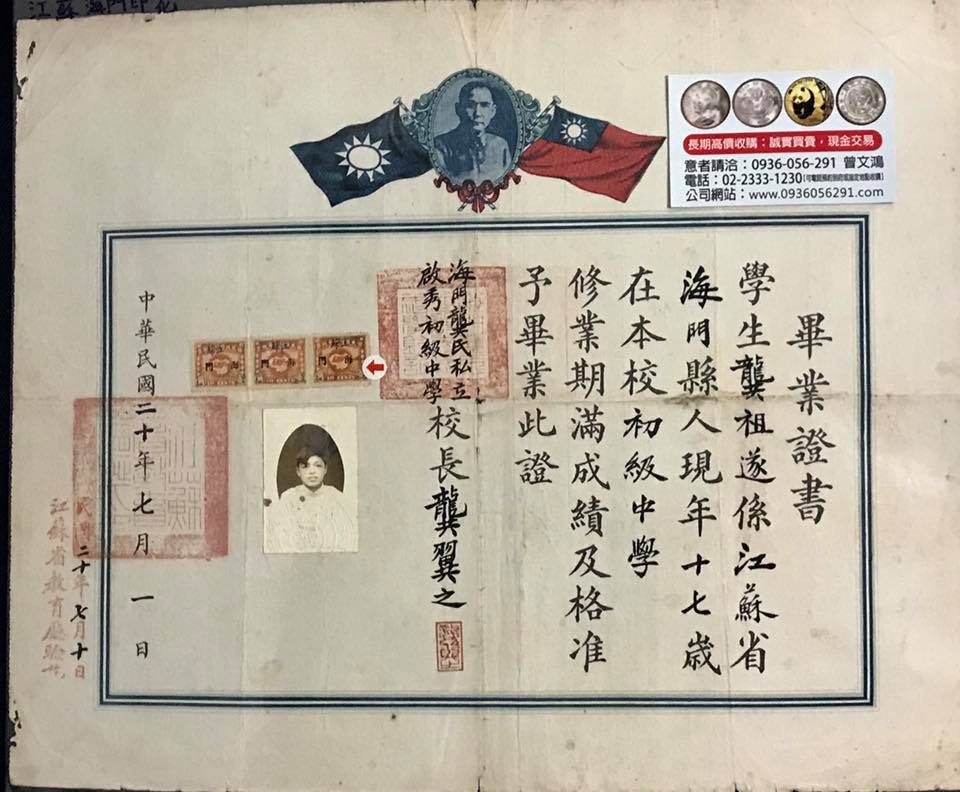 江蘇海門印花
長期高價收購：誠實買賣，現金交易
意者請洽：0936-056-291 曾文鴻
電話：02-2333-1230
公司網站：www.0936056291.com
畢業證書
學生龔祖遂係江蘇省
海門縣人現年十七歲
在本校初級中學
修業期滿成績及格准
予畢業此證
海門龔氏私立
啟秀初級中學
校長龔翼之
海門
海門
海門
中華民國二十年七月一日
民國二十年七月十日
江蘇省教育廳驗訖